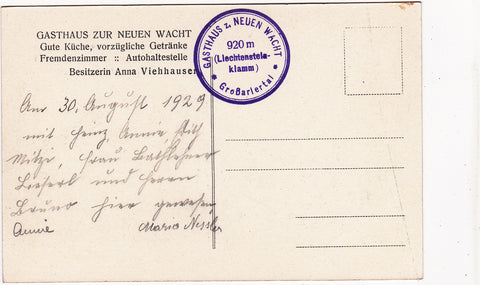 GASTHAUS ZUR NEUEN WACHT
Gute Küche, vorzügliche Getränke
Fremdenzimmer :: Autohaltestelle
Besitzerin Anna Viehhauser
GASTHAUS z. NEUEN WACHT
920 m
(Liechtenstein-
klamm)
* Großarlertal *
Am 30. August 1929
mit Heinz, Annie,
Mitzi, Frau
und Herrn
Bruno hier gewesen
Annie
Maria Nessler